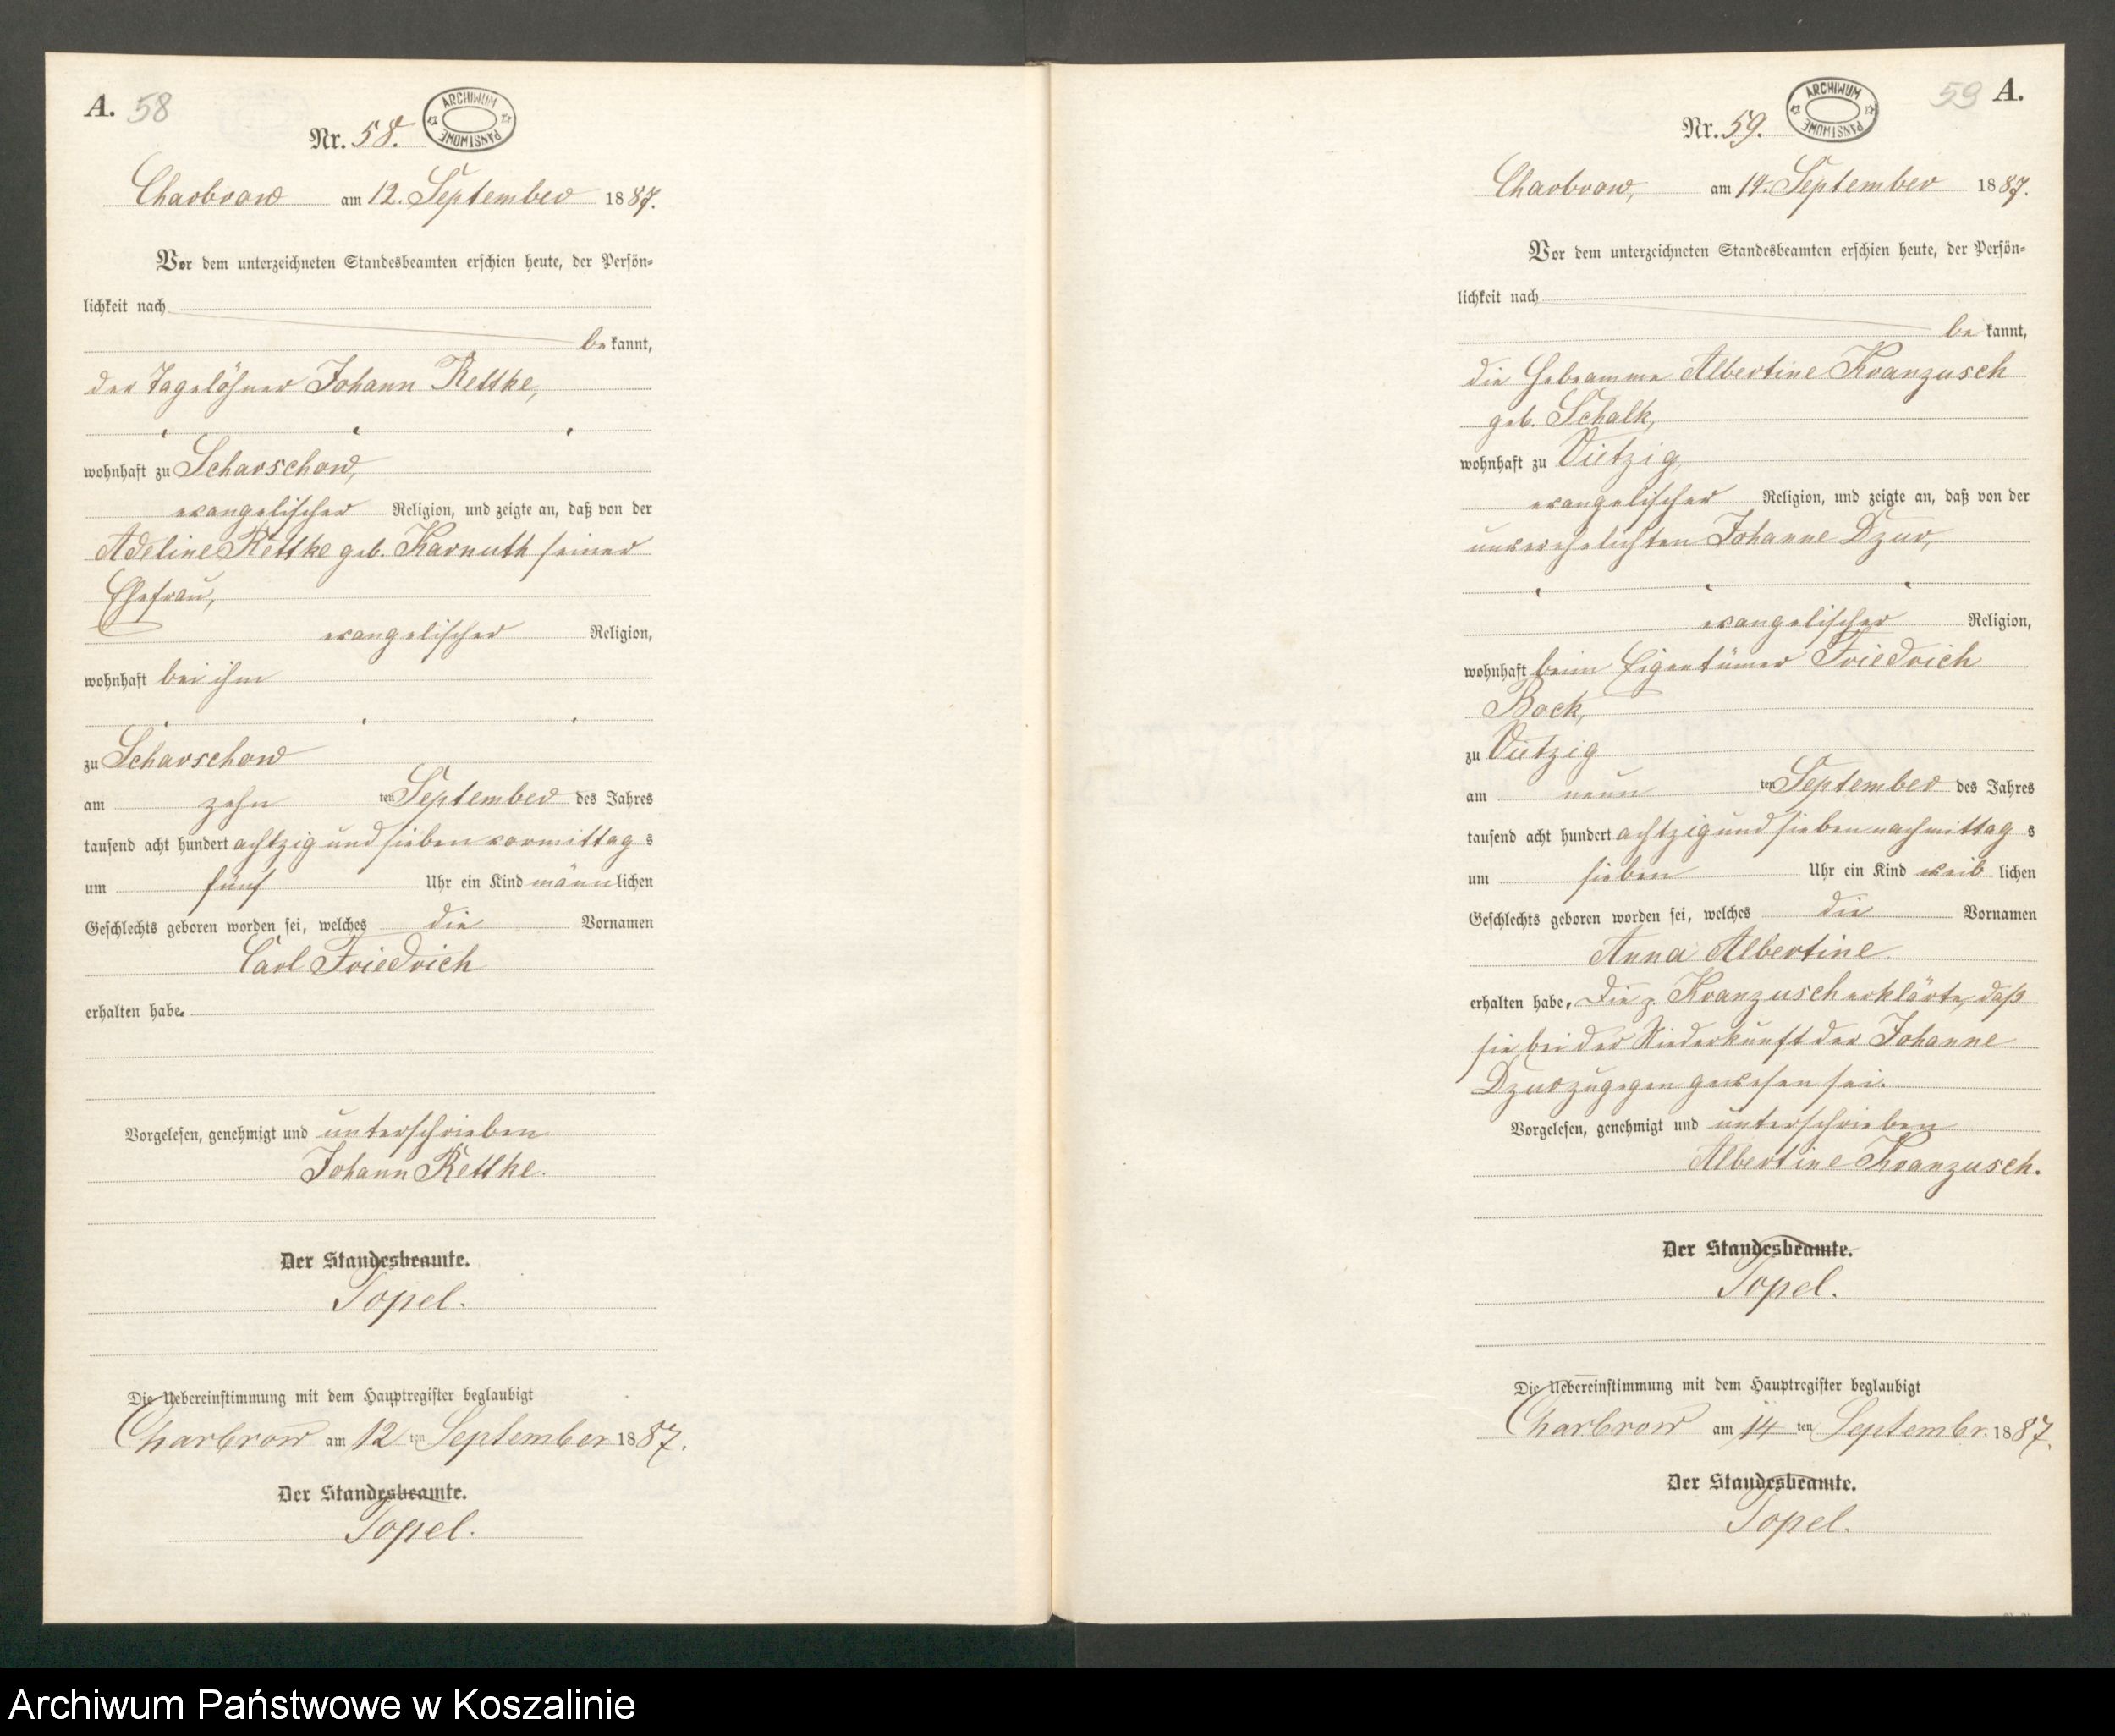 A. 58
ARCHIWUM PAŃSTWOWE
Nr. 58.
Charbrow am 12. September 1887.
Vor dem unterzeichneten Standesbeamten erschien heute, der Persön-
lichkeit nach
be kannt,
der Tagelöhner Johann Rettke,
wohnhaft zu Scharschow,
evangelischer Religion, und zeigte an, daß von der
Adeline Rettke geb. Karnuth seiner
Ehefrau,
evangelischer Religion,
wohnhaft bei ihm
zu Scharschow
am zehn ten September des Jahres
tausend acht hundert achtzig und sieben vormittag s
um fünf Uhr ein Kind männlichen
Geschlechts geboren worden sei, welches die Vornamen
Carl Friedrich
erhalten habe.
Vorgelesen, genehmigt und unterschrieben
Johann Rettke.
Der Standesbeamte.
Topel.
Die Uebereinstimmung mit dem Hauptregister beglaubigt
Charbrow am 12 ten September 1887.
Der Standesbeamte.
Topel.
59 A.
ARCHIWUM PAŃSTWOWE
Nr. 59.
Charbrow, am 14. September 1887.
Vor dem unterzeichneten Standesbeamten erschien heute, der Persön-
lichkeit nach
be kannt,
die Hebeamme Albertine Kranzusch
geb. Schalk,
wohnhaft zu Vietzig,
evangelischer Religion, und zeigte an, daß von der
unverehelichten Johanne Dzur,
evangelischer Religion,
wohnhaft beim Eigentümer Friedrich
Bock,
zu Vietzig
am neun ten September des Jahres
tausend acht hundert achtzig und sieben nachmittag s
um sieben Uhr ein Kind weib lichen
Geschlechts geboren worden sei, welches die Vornamen
Anna Albertine
erhalten habe. Die p. Kranzusch erklärte, daß
sie bei der Niederkunft der Johanne
Dzur zugegen gewesen sei.
Vorgelesen, genehmigt und unterschrieben
Albertine Kranzusch.
Der Standesbeamte.
Topel.
Die Uebereinstimmung mit dem Hauptregister beglaubigt
Charbrow am 14 ten Septembr. 1887.
Der Standesbeamte.
Topel.
Archiwum Państwowe w Koszalinie